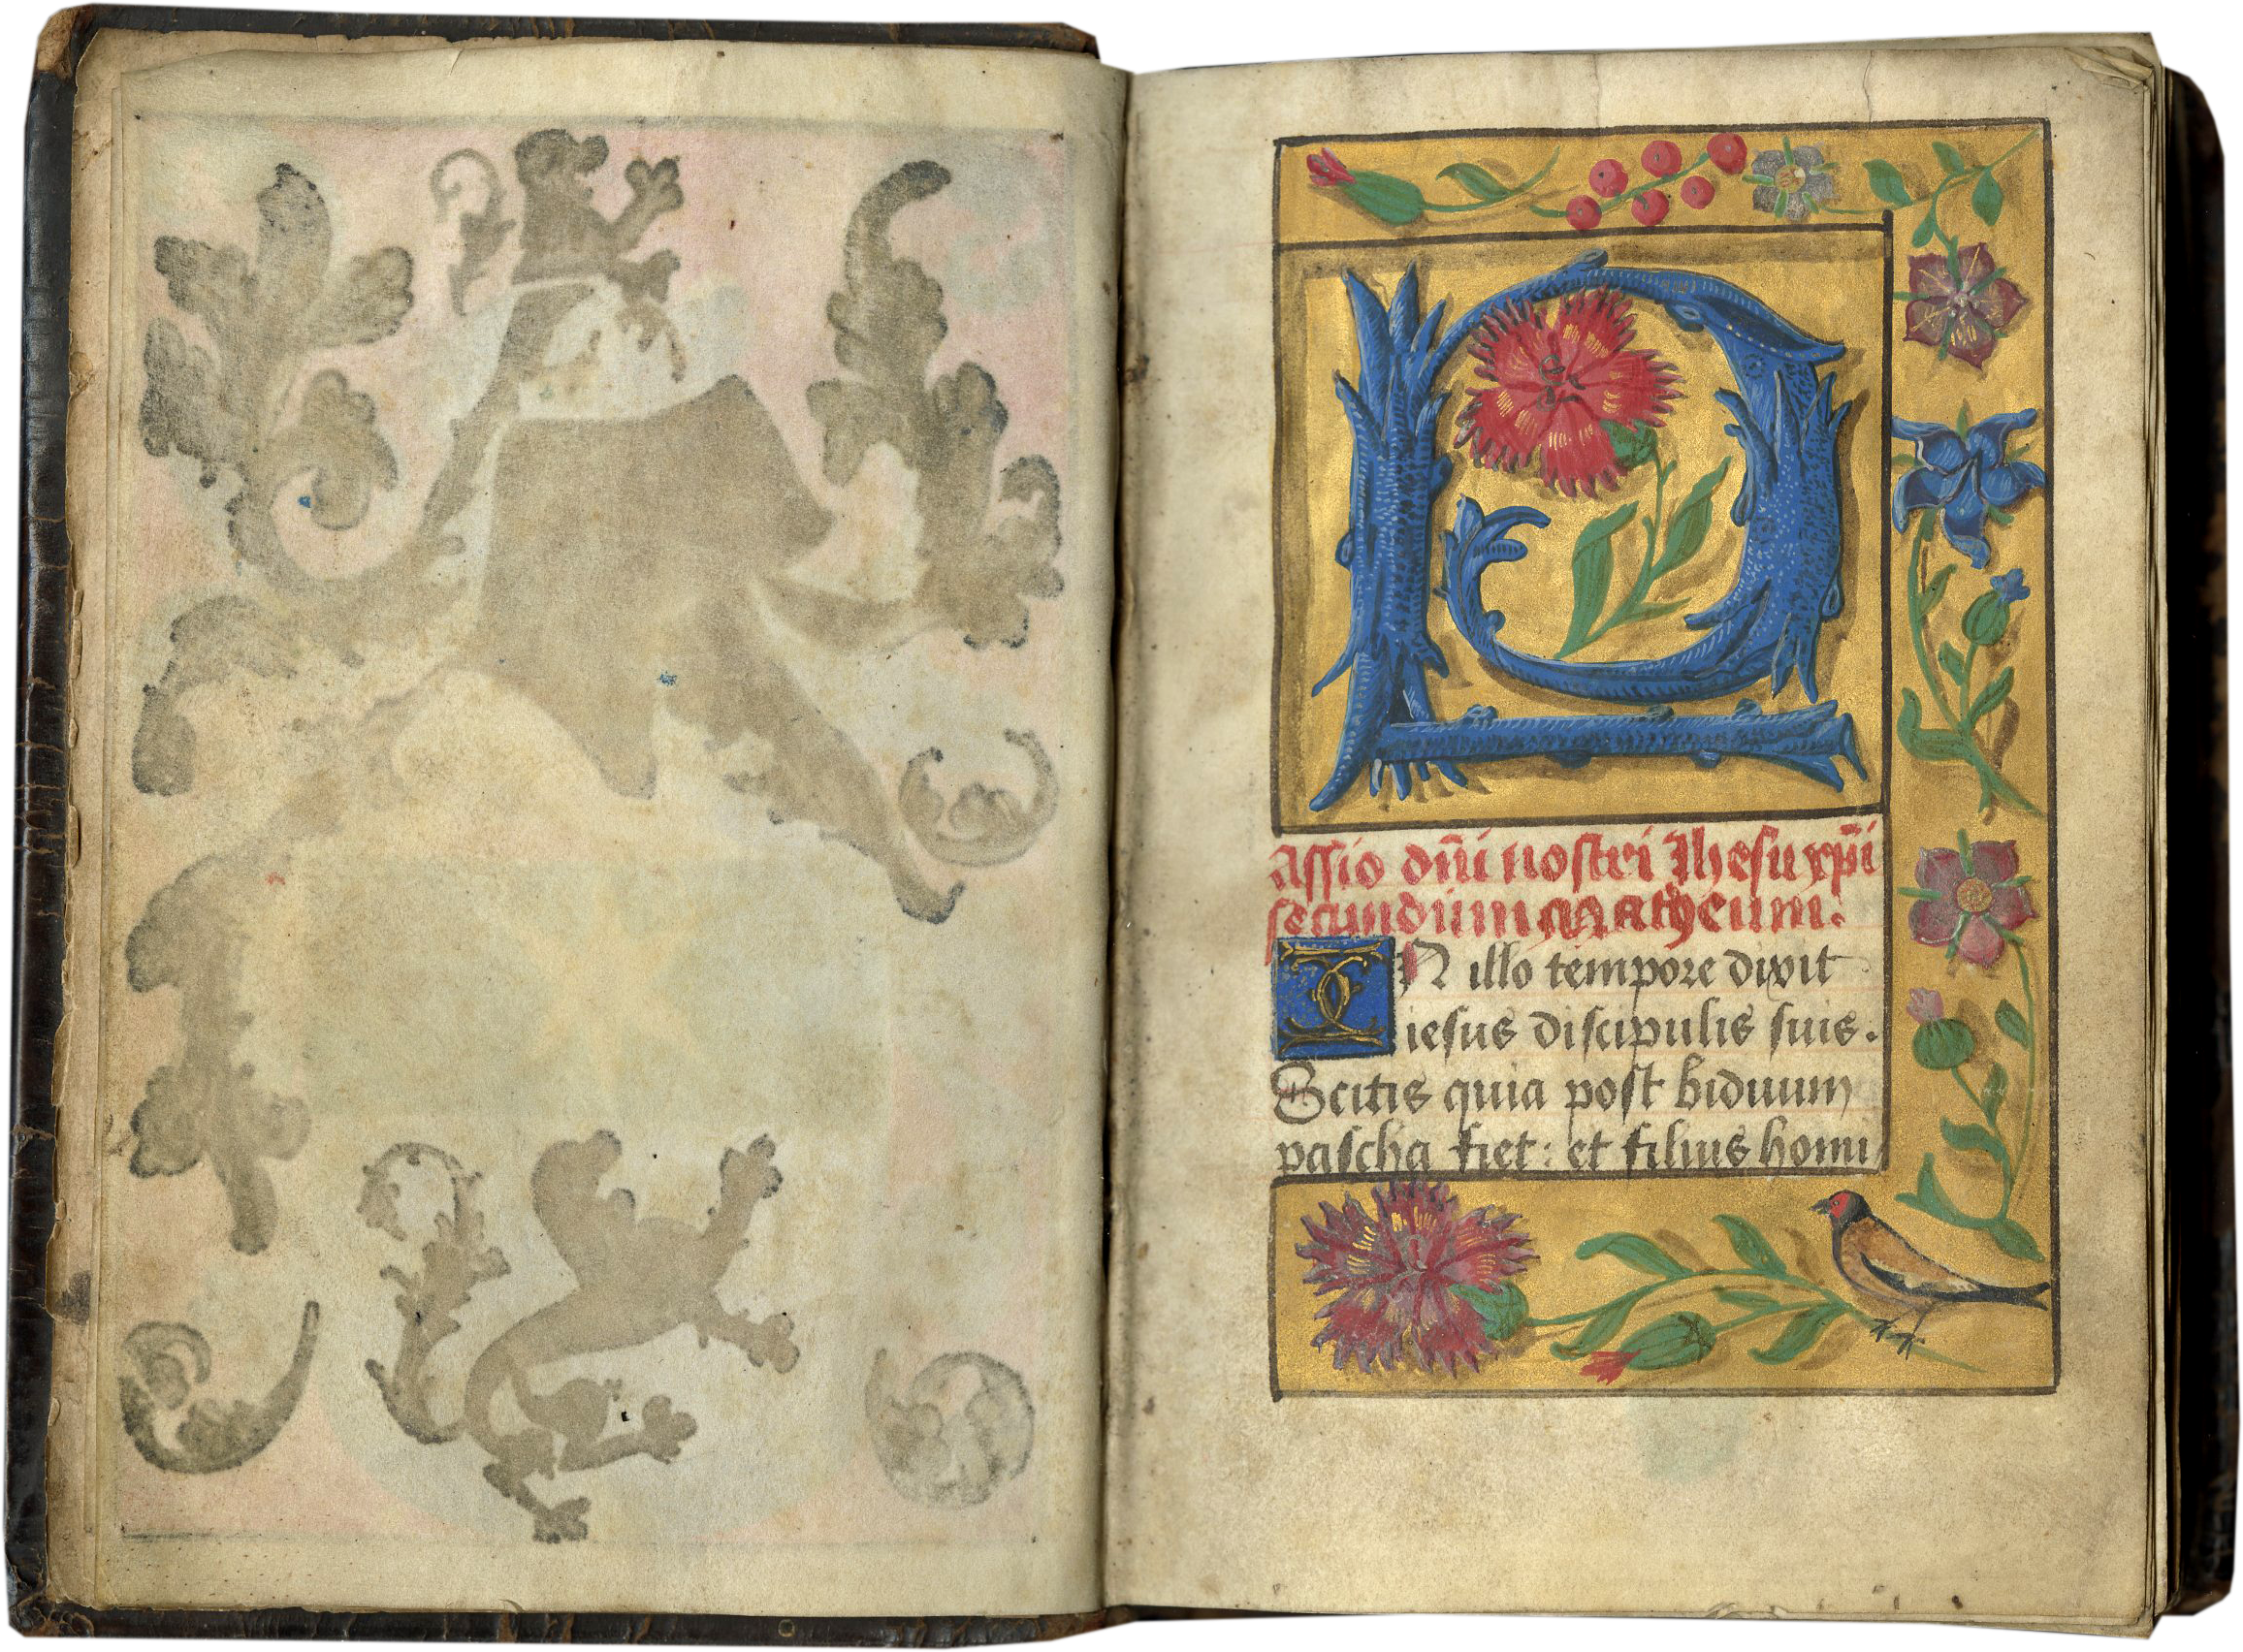 P
assio dñi nostri Ihesu xp̄i
secundum Matheum.
IN illo tempore dixit
iesus discipulis suis.
Scitis quia post biduum
pascha fiet: et filius homi